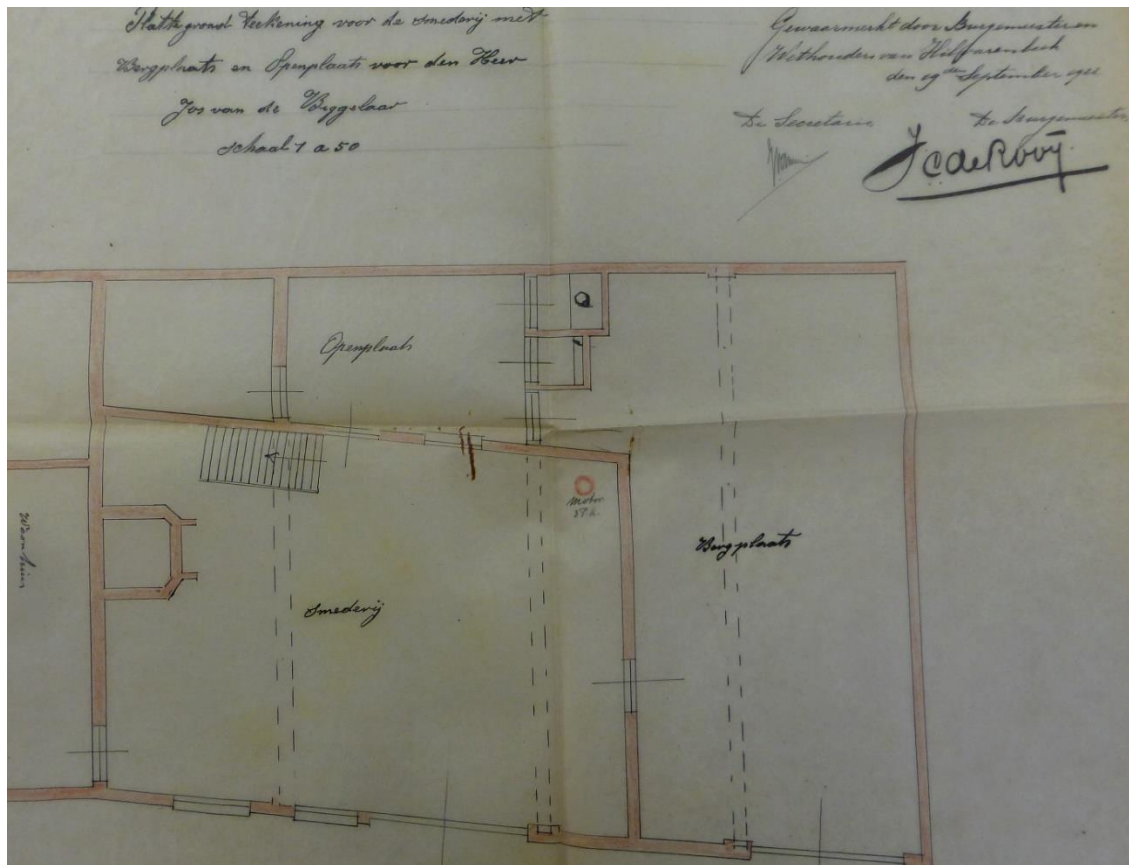 Platte grond Teekening voor de smederij met
Bergplaats en Openplaats voor den Heer
Jos van de Biggelaar
schaal 1 a 50
Gewaarmerkt door Burgemeester en
Wethouders van Hilvarenbeek
den 19den September
De Secretaris
De Burgemeester,
JCdeRooÿ
Openplaats
motor
Bergplaats
Woonhuis
smederij